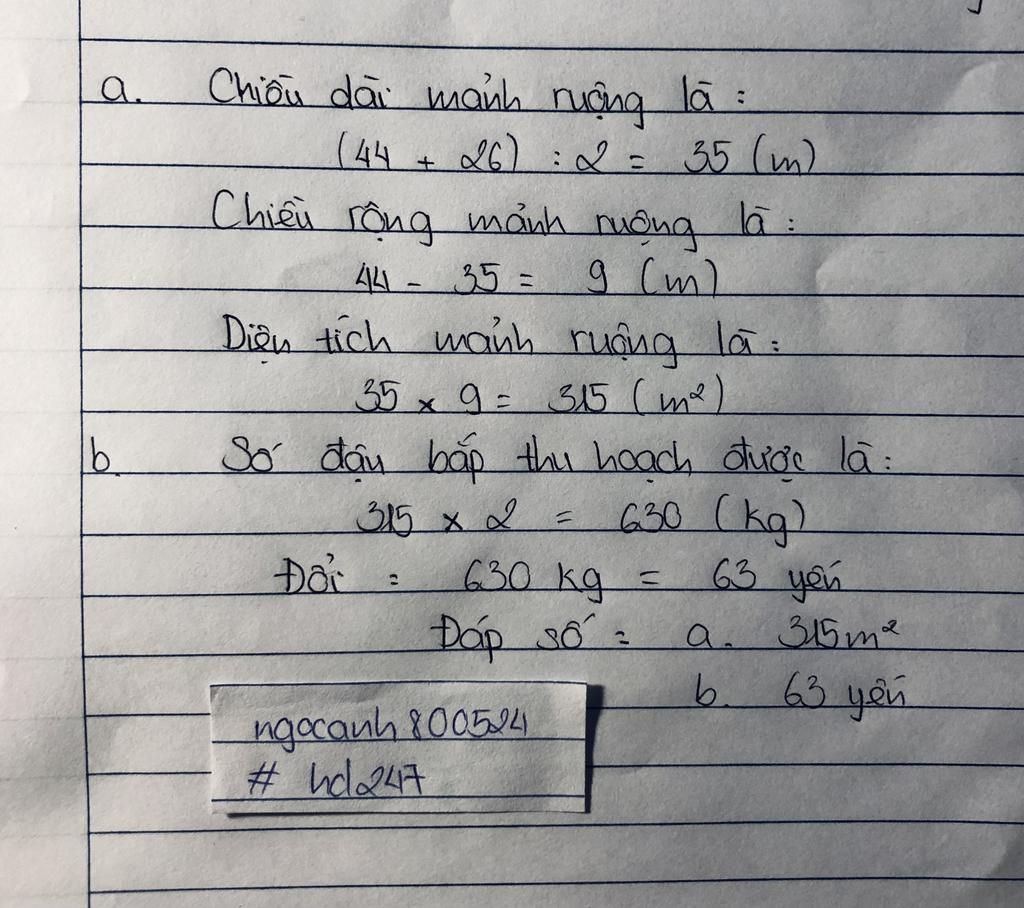 a. Chiều dài mảnh ruộng là :
(44 + 26) : 2 = 35 (m)
Chiều rộng mảnh ruộng là :
44 - 35 = 9 (m)
Diện tích mảnh ruộng là :
35 x 9 = 315 (m²)
b. Số đậu bắp thu hoạch được là :
315 x 2 = 630 (kg)
Đổi : 630 kg = 63 yến
Đáp số : a. 315m²
b. 63 yến
ngocanh800524
# hd247